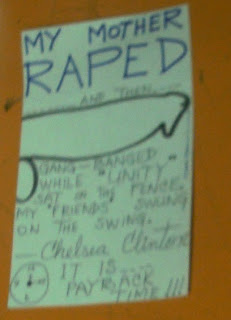 MY MOTHER
RAPED
AND THEN
GANG-BANGED
WHILE "UNITY"
SAT ON THE FENCE.
MY "FRIENDS" SWUNG
ON THE SWING.
— Chelsea Clinton
IT IS
PAYBACK
TIME!!!